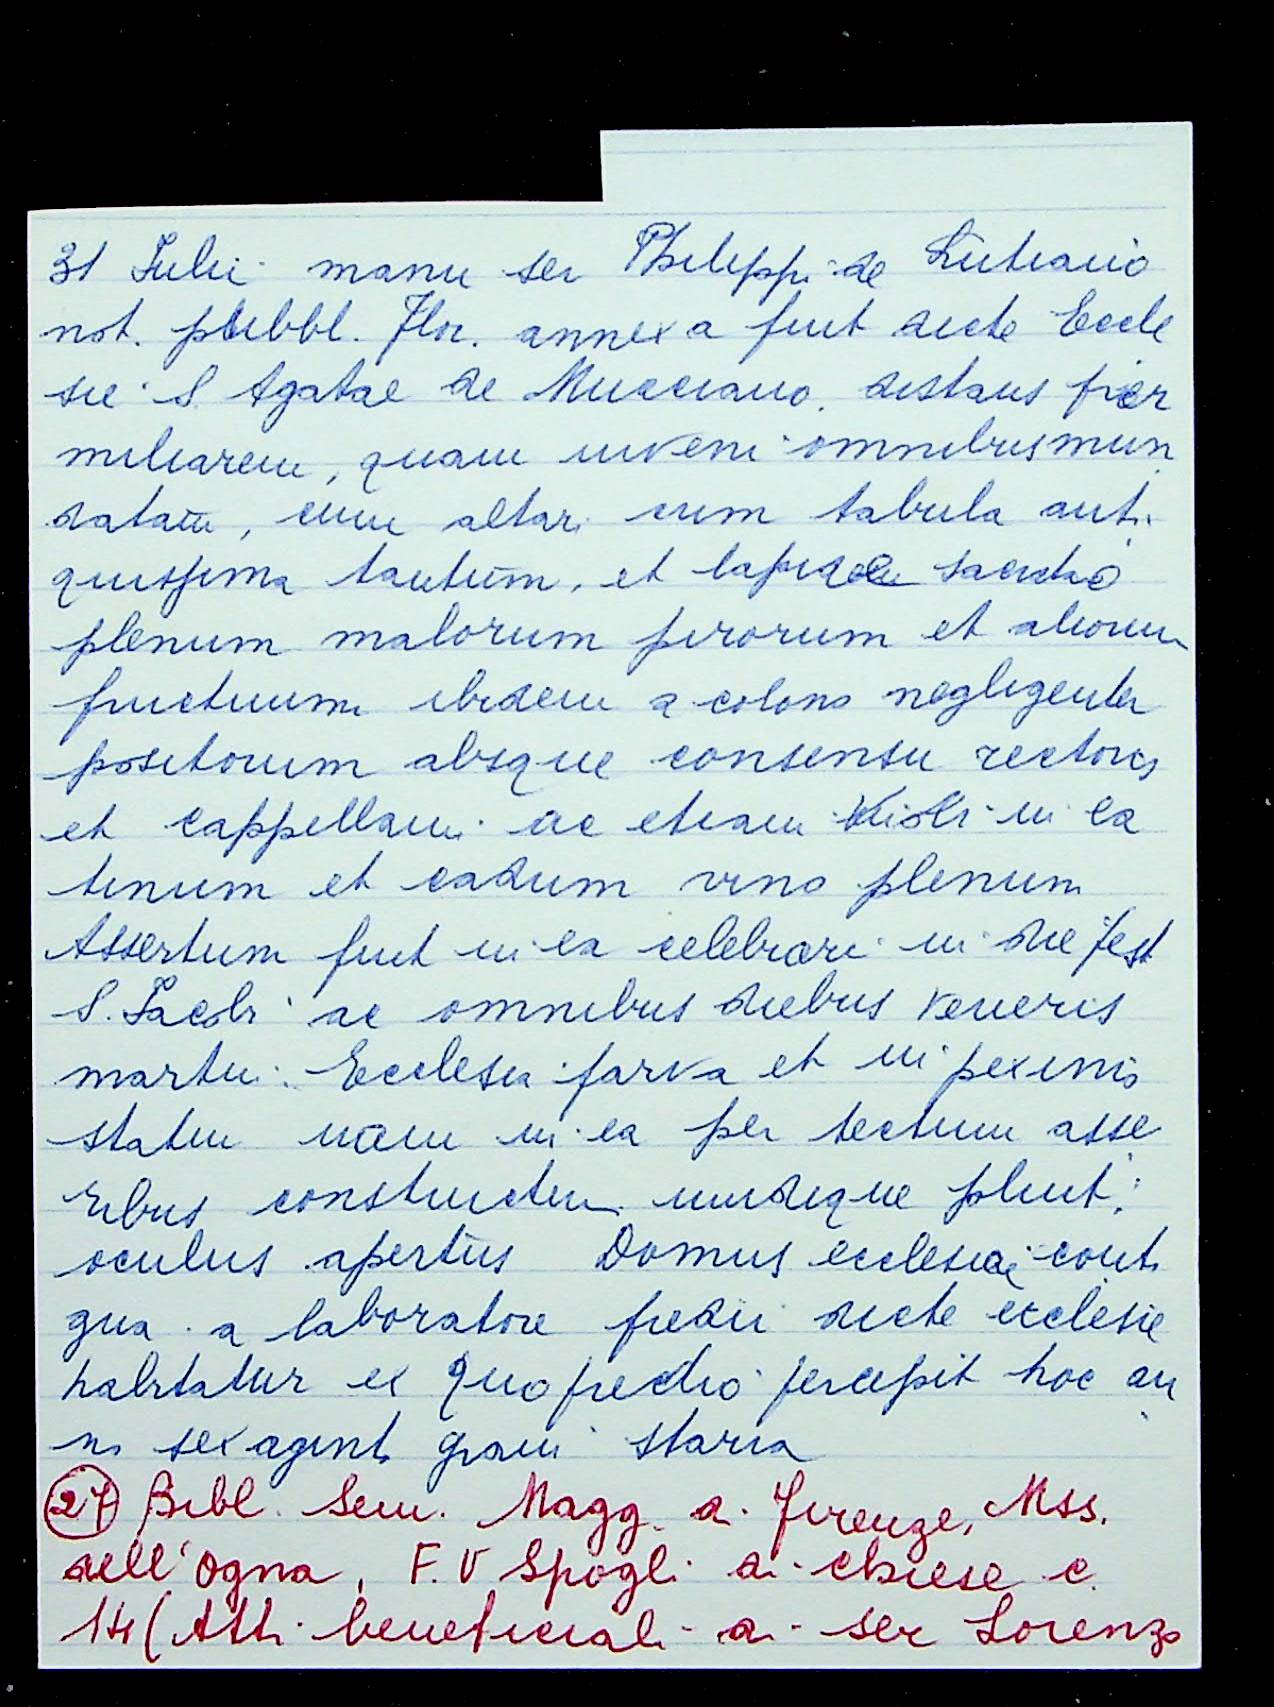 31 Iulii manu ser Philippi de Lutiano
not. pubbl. Flor. annexa fuit dicte Eccle
sie S. Agatae de Mucciano distans fier
miliarem, quam inveni omnibus mun
datam, cum altari cum tabula anti
quissima tantum, et lapidem sacrato
plenum malorum pirorum et aliorum
fructuum ibidem a colono negligenter
positorum absque consensu rectoris
et cappellani ac etiam in ea
tinum et cadum vino plenum
Assertum fuit in ea celebrari in die fest
S. Iacobi ac omnibus diebus veneris
martii. Ecclesia parva et in peximo
statu nam in ea per tectum asse
ribus constructum undique pluit;
oculus apertus Domus ecclesiae conti
gua a laboratore predii dicte ecclesie
habitatur ex quo predio percepit hoc an
no sexaginti grani staria
27 Bibl. Sem. Magg. di Firenze, Mss.
dell'Ogna, F. V Spogli di chiese c.
14 (Atti beneficiali di ser Lorenzo